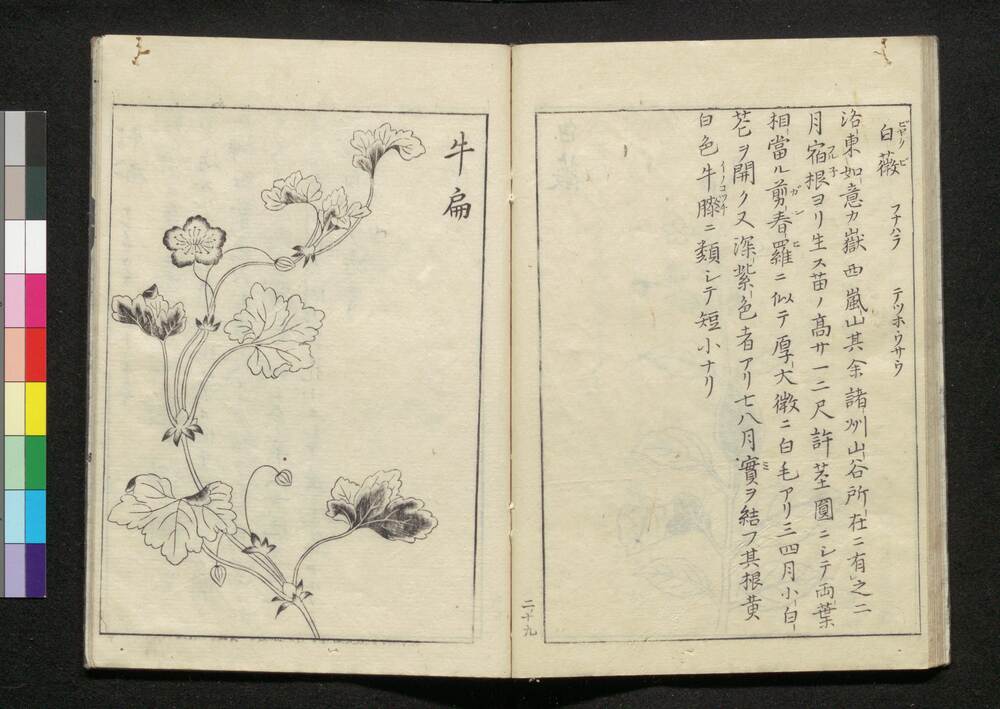 白薇 ビヤクビ フナハラ テツホウサウ
洛東如意カ嶽西嵐山其余諸州山谷所在ニ有之二
月宿根ヨリ生ス苗ノ高サ一二尺許茎圓ニシテ両葉
相當ル剪春羅ニ似テ厚大微ニ白毛アリ三四月小白
花ヲ開クス深紫色者アリ七八月實ヲ結フ其根黄
白色牛膝ニ類シテ短小ナリ
二十九
牛扁